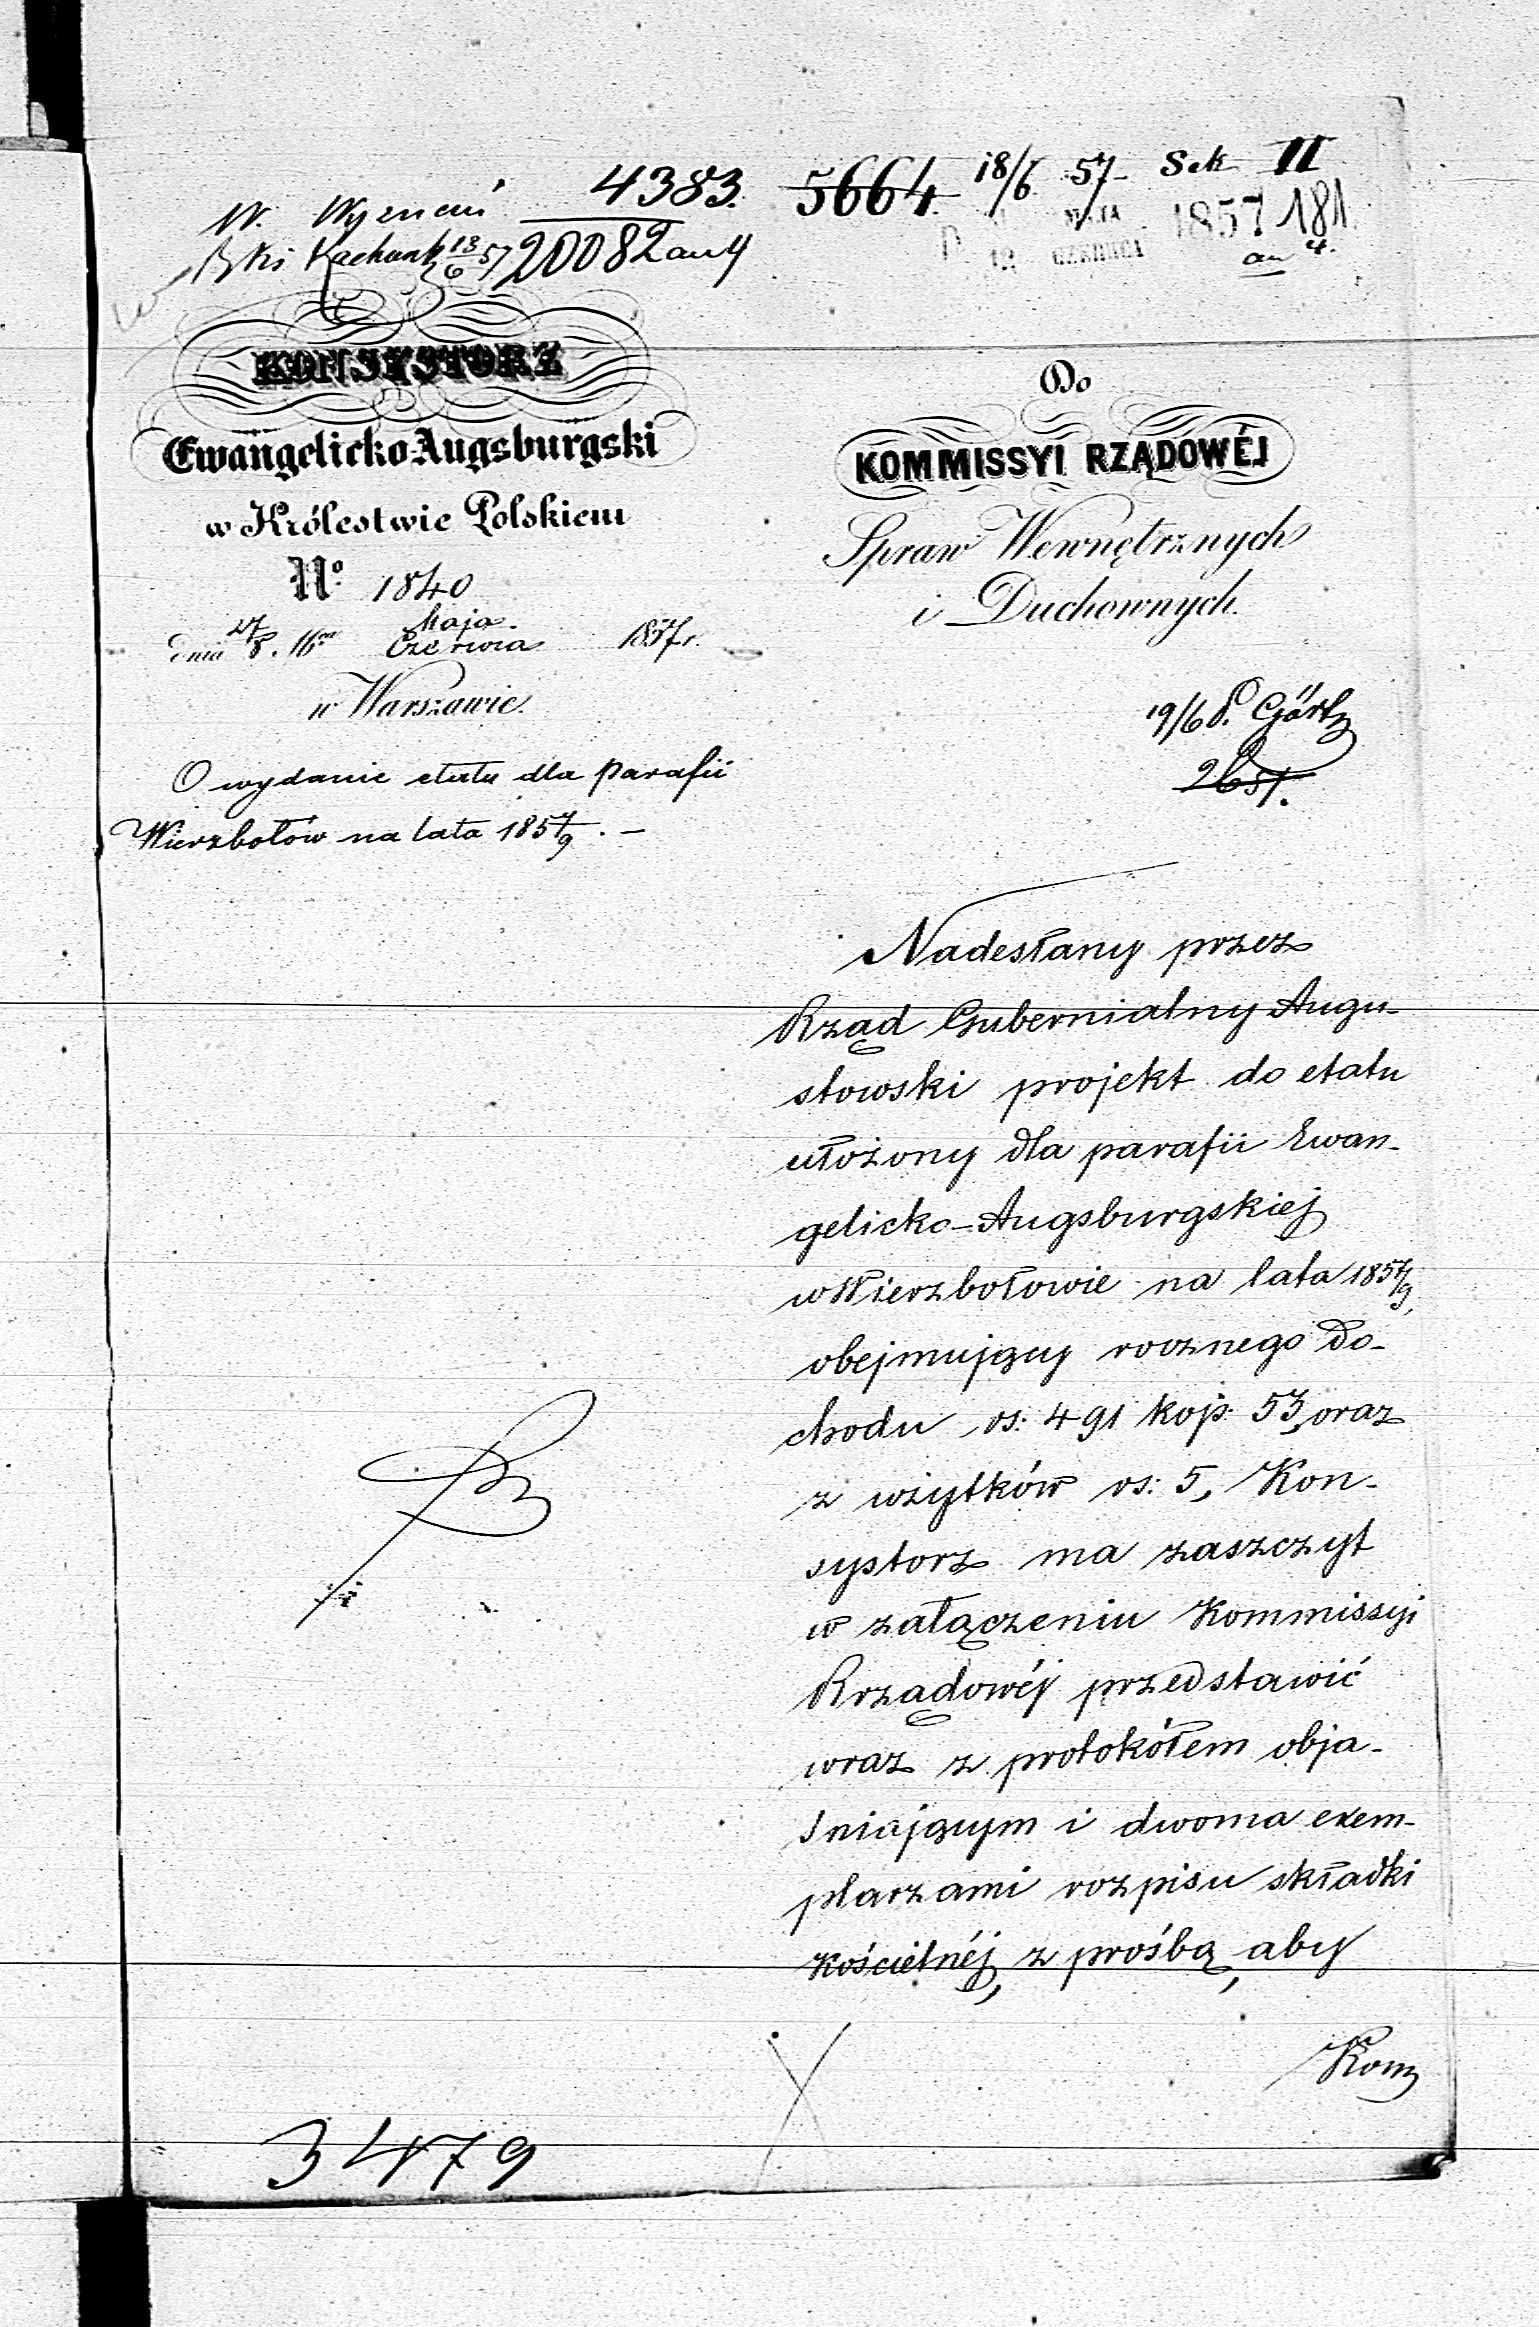 4383. 5664. 18/6 57 Sek II
W. Wyznań
20082 an 4
MAJA 1857 181
12 CZERWCA an 4.
KONSYSTORZ
Ewangelicko-Augsburgski
w Królestwie Polskiem
No. 1840
Maja.
dnia 27/8. Czerwca 1857 r.
w Warszawie.
O wydanie etatu dla parafii
Wierzbołów na lata 1857/9. –
Do
KOMMISSYI RZĄDOWÉJ
Spraw Wewnętrznych
i Duchownych.
19/6 P. Görtz
Nadesłany przez
Rząd Gubernialny Augu-
stowski projekt do etatu
ułożony dla parafii Ewan-
gelicko-Augsburgskiej
w Wierzbołowie na lata 1857/9,
obejmujący rocznego do-
chodu rs: 491 kop: 53, oraz
z użytków rs: 5, Kon-
systorz ma zaszczyt
w załączeniu Kommissyi
Rządowéj przedstawić
wraz z protokółem obja-
śniającym i dwoma exem-
plarzami rozpisu składki
kościelnéj, z prośbą, aby
Kom
3479